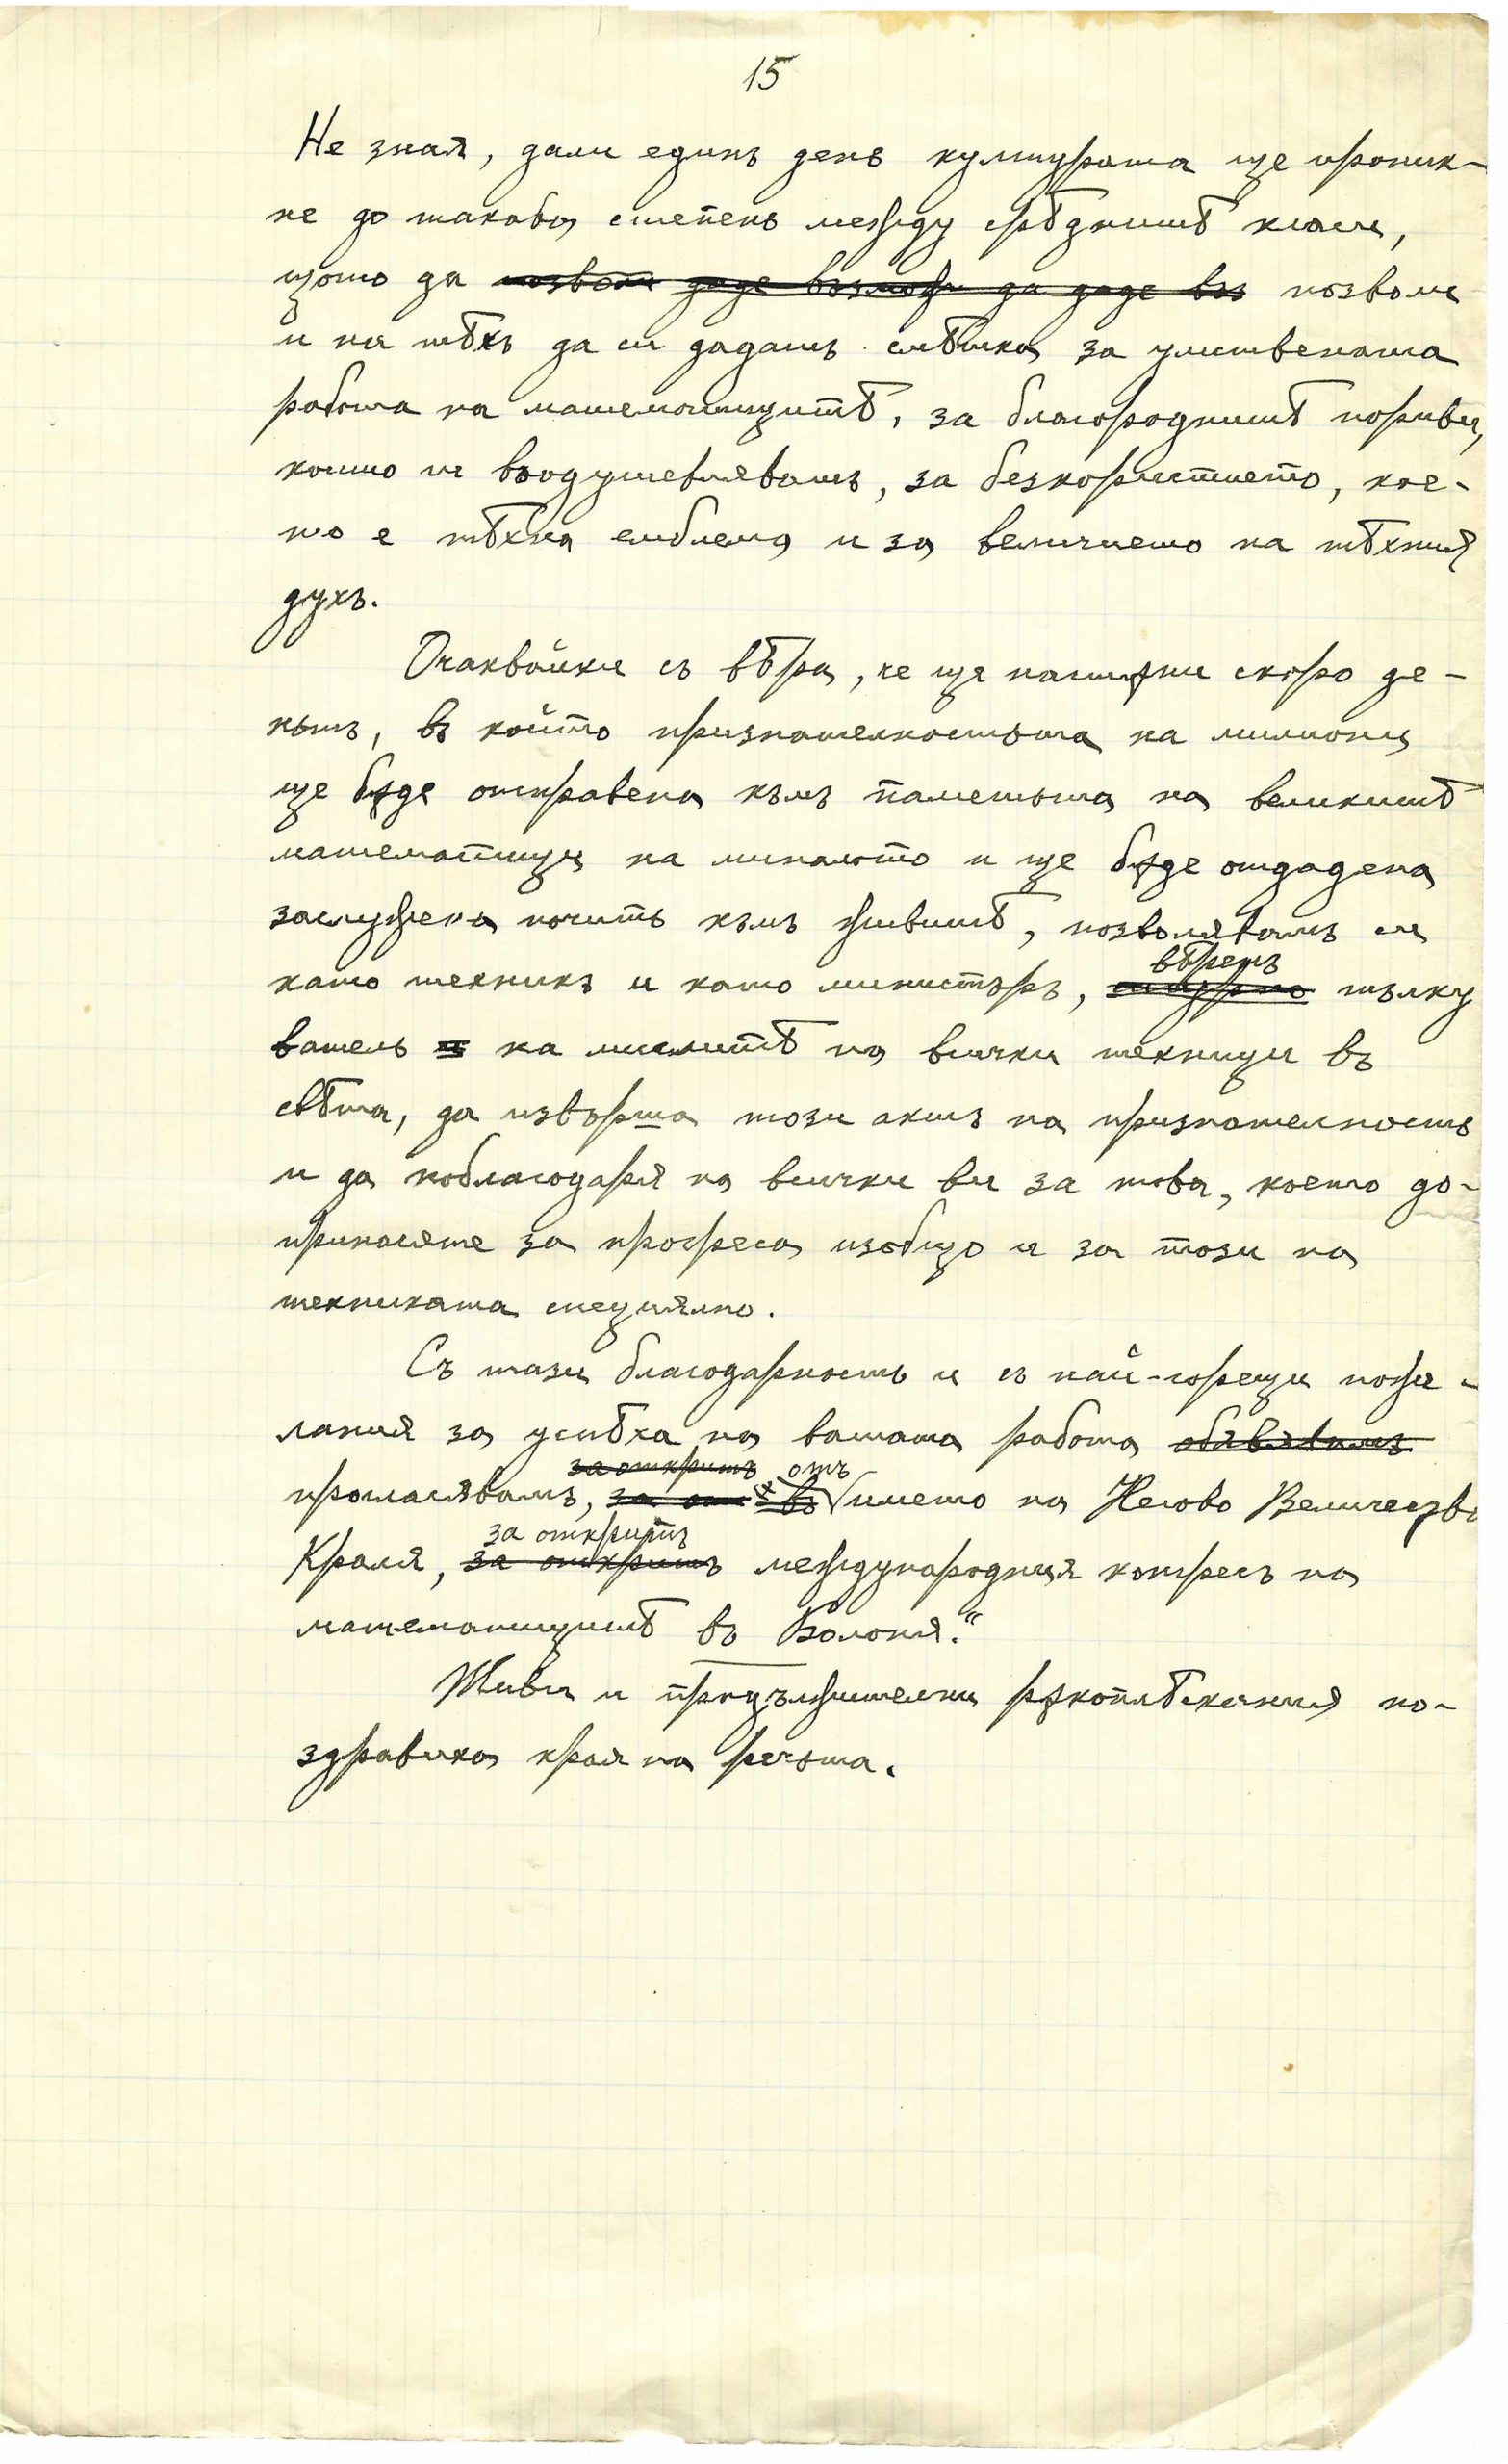 15
Не зная, дали единъ день културата ще проник-
не до такава степень между срѣднитѣ класи,
щото да ~~позволи даде възмож да даде въз~~ позволи
и на тѣхъ да си дадатъ смѣтка за умствената
работа на математицитѣ, за благороднитѣ пориви,
които ги въодушевляватъ, за безкористието, кое-
то е тѣхна емблема и за величието на тѣхния
духъ.
Очаквайки съ вѣра, че ще настѫпи скоро де-
ньтъ, въ който признателностьта на милиони
ще бѫде отправена къмъ паметьта на великитѣ
математици на миналото и ще бѫде отдадена
заслужена почить къмъ живитѣ, позволявамъ си
вѣренъ
като техникъ и като министъръ, тълку
ватель на мислитѣ на всички техници въ
свѣта, да извърша този актъ на признателность
и да поблагодаря на всички ви за това, което до-
принасяте за прогреса изобщо и за този на
техниката специялно.
Съ тази благодарность и съ най-горещи поже-
лания за успѣха на вашата работа ~~обявявамъ~~
~~за откритъ~~ отъ
прогласявамъ, ~~за от~~ ~~въ~~ името на Негово Величество
за откритъ
Краля, ~~за откритъ~~ международния конгресъ на
математицитѣ въ Болоня.“
Живи и продължителни рѫкоплѣскания по-
здравиха края на речьта.